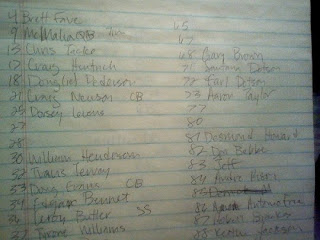 4 Brett Fave
9 McMahon QB
13 Chris Jacke
17 Craig Hentrich
18 Doug Pederson
21 Craig Newsom CB
25 Dorsey Levens
27
28
30 William Henderson
32 Travis Jervey
33 Doug Evans CB
34 Edgar Bennet
36 Leroy Butler SS
37 Tyrone Williams
45
47
48 Gary Brown
71
72 Earl Dotson
73 Aaron Taylor
77
80
81 Desmond Howard
82 Don Beebe
83 Jeff
84 Andre Rison
85
86 Antonio
87 Robert Brooks
88 Keith Jackson